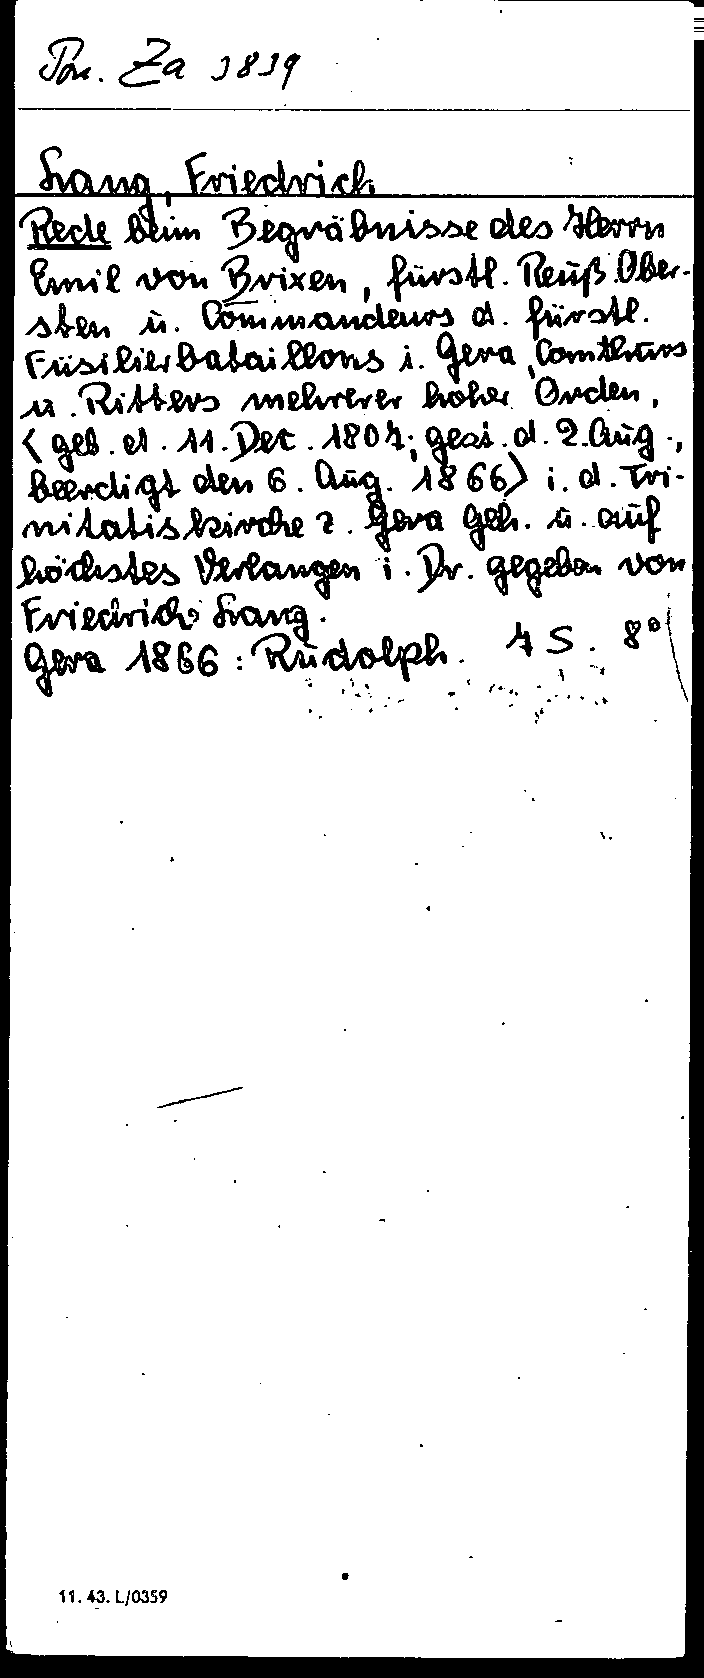 Pon. Za 3839
Lang, Friedrich
Rede beim Begräbnisse des Herrn
Emil von Brixen, fürstl. Reuß. Ober-
sten u. Commandeurs d. fürstl.
Füsilierbataillons i. Gera, Comthurs
u. Ritters mehrerer hoher Orden,
(geb. d. 11. Dec. 1807; gest. d. 2. Aug.,
beerdigt den 6. Aug. 1866) i. d. Tri-
nitatiskirche z. Gera geh. u. auf
höchstes Verlangen i. Dr. gegeben von
Friedrich Lang.
Gera 1866: Rudolph. 7 S. 8°
11. 43. L/0359